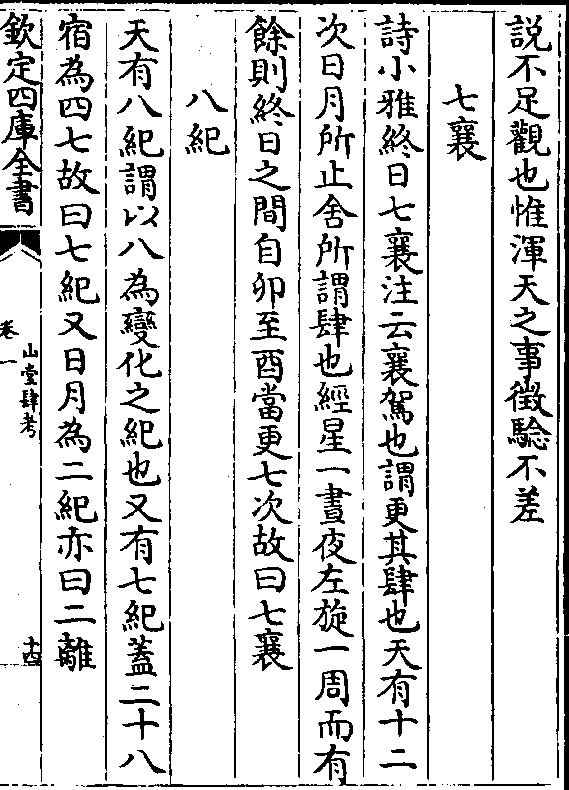 説不足觀也惟渾天之事徴驗不差
七襄
詩小雅終日七襄注云襄駕也謂更其肆也天有十二
次日月所止舍所謂肆也經星一晝夜左旋一周而有
餘則終日之間自卯至酉當更七次故曰七襄
八紀
天有八紀謂以八為變化之紀也又有七紀蓋二十八
宿為四七故曰七紀又日月為二紀亦曰二離
欽定四庫全書
山堂肆考
卷一
十四